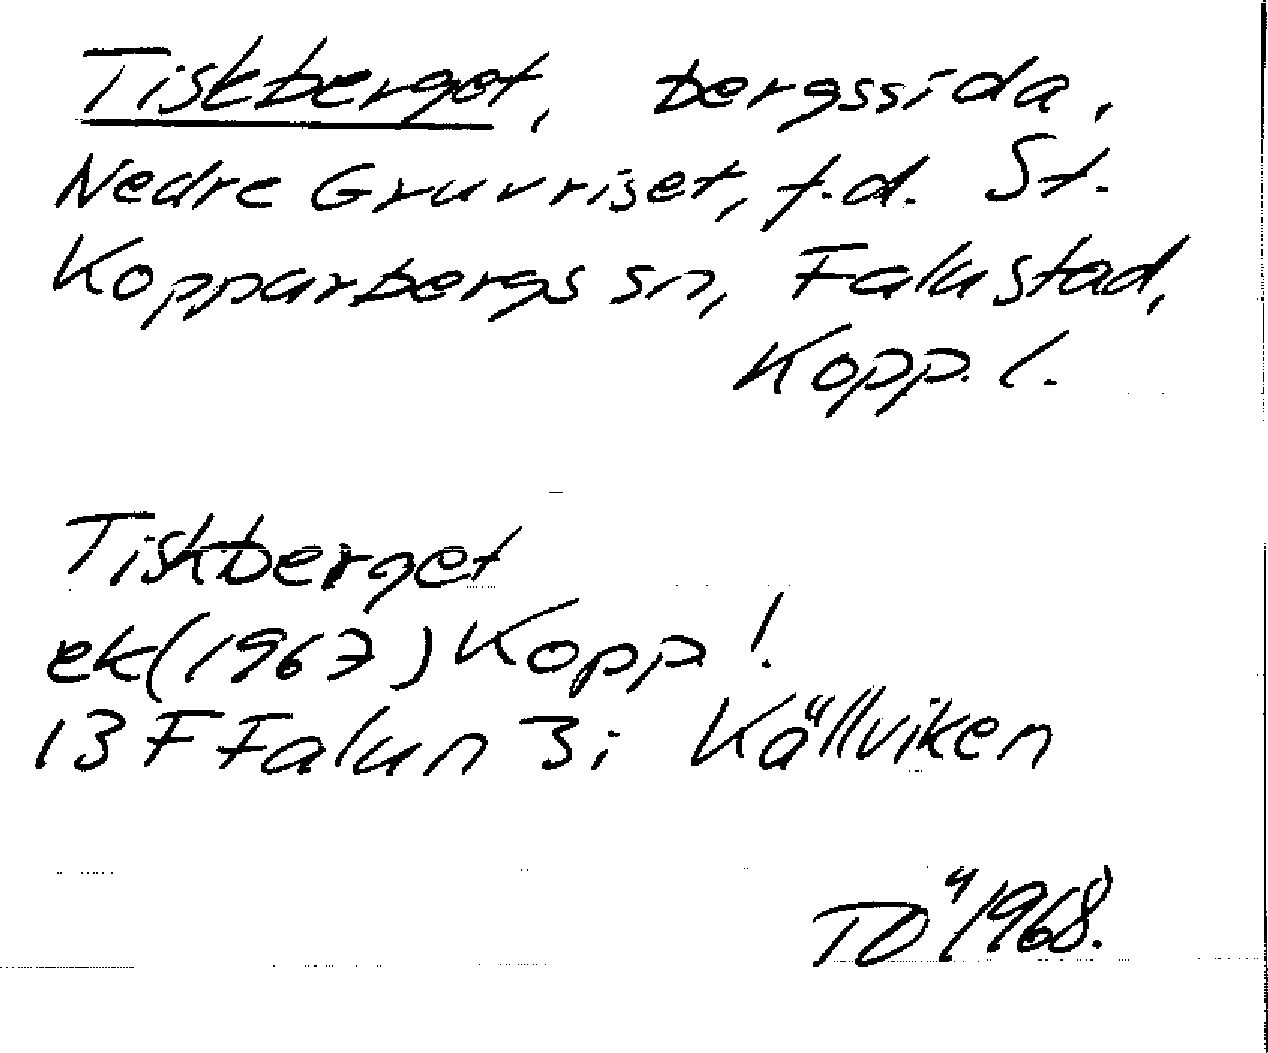 Tiskberget, bergssida,
Nedre Gruvriset, f.d. St.
Kopparbergs sn, Falu stad,
Kopp. l.
Tiskberget
ek (1967) Kopp !
13 F Falun 3 i Källviken
TO 4/1968.